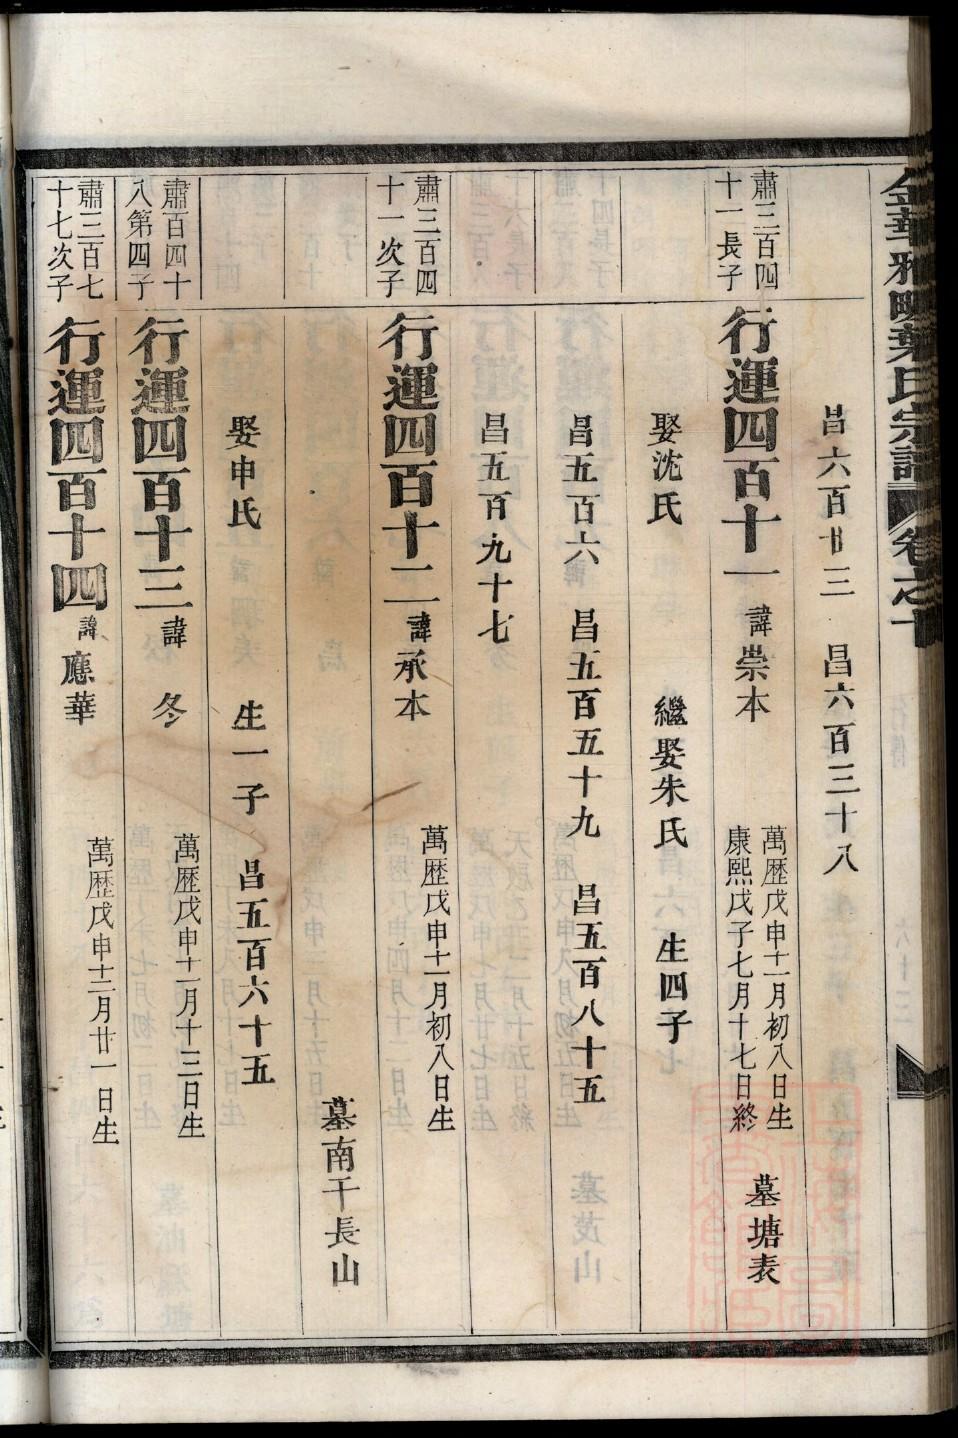 金華雅畈葉氏宗譜 卷之十
昌六百廿三 昌六百三十八
肅三百四十一長子
行運四百十一 諱崇本 萬歷戊申十一月初八日生 康熙戊子七月十七日終 墓塘表
娶沈氏 繼娶朱氏 生四子
昌五百六 昌五百五十九 昌五百八十五
昌五百九十七
肅三百四十一次子
行運四百十二 諱承本 萬歷戊申十一月初八日生
墓南干長山
娶申氏 生一子 昌五百六十五
肅百四十八第四子
行運四百十三 諱冬 萬歷戊申十一月十三日生
肅三百七十七次子
行運四百十四 諱應華 萬歷戊申十二月廿一日生